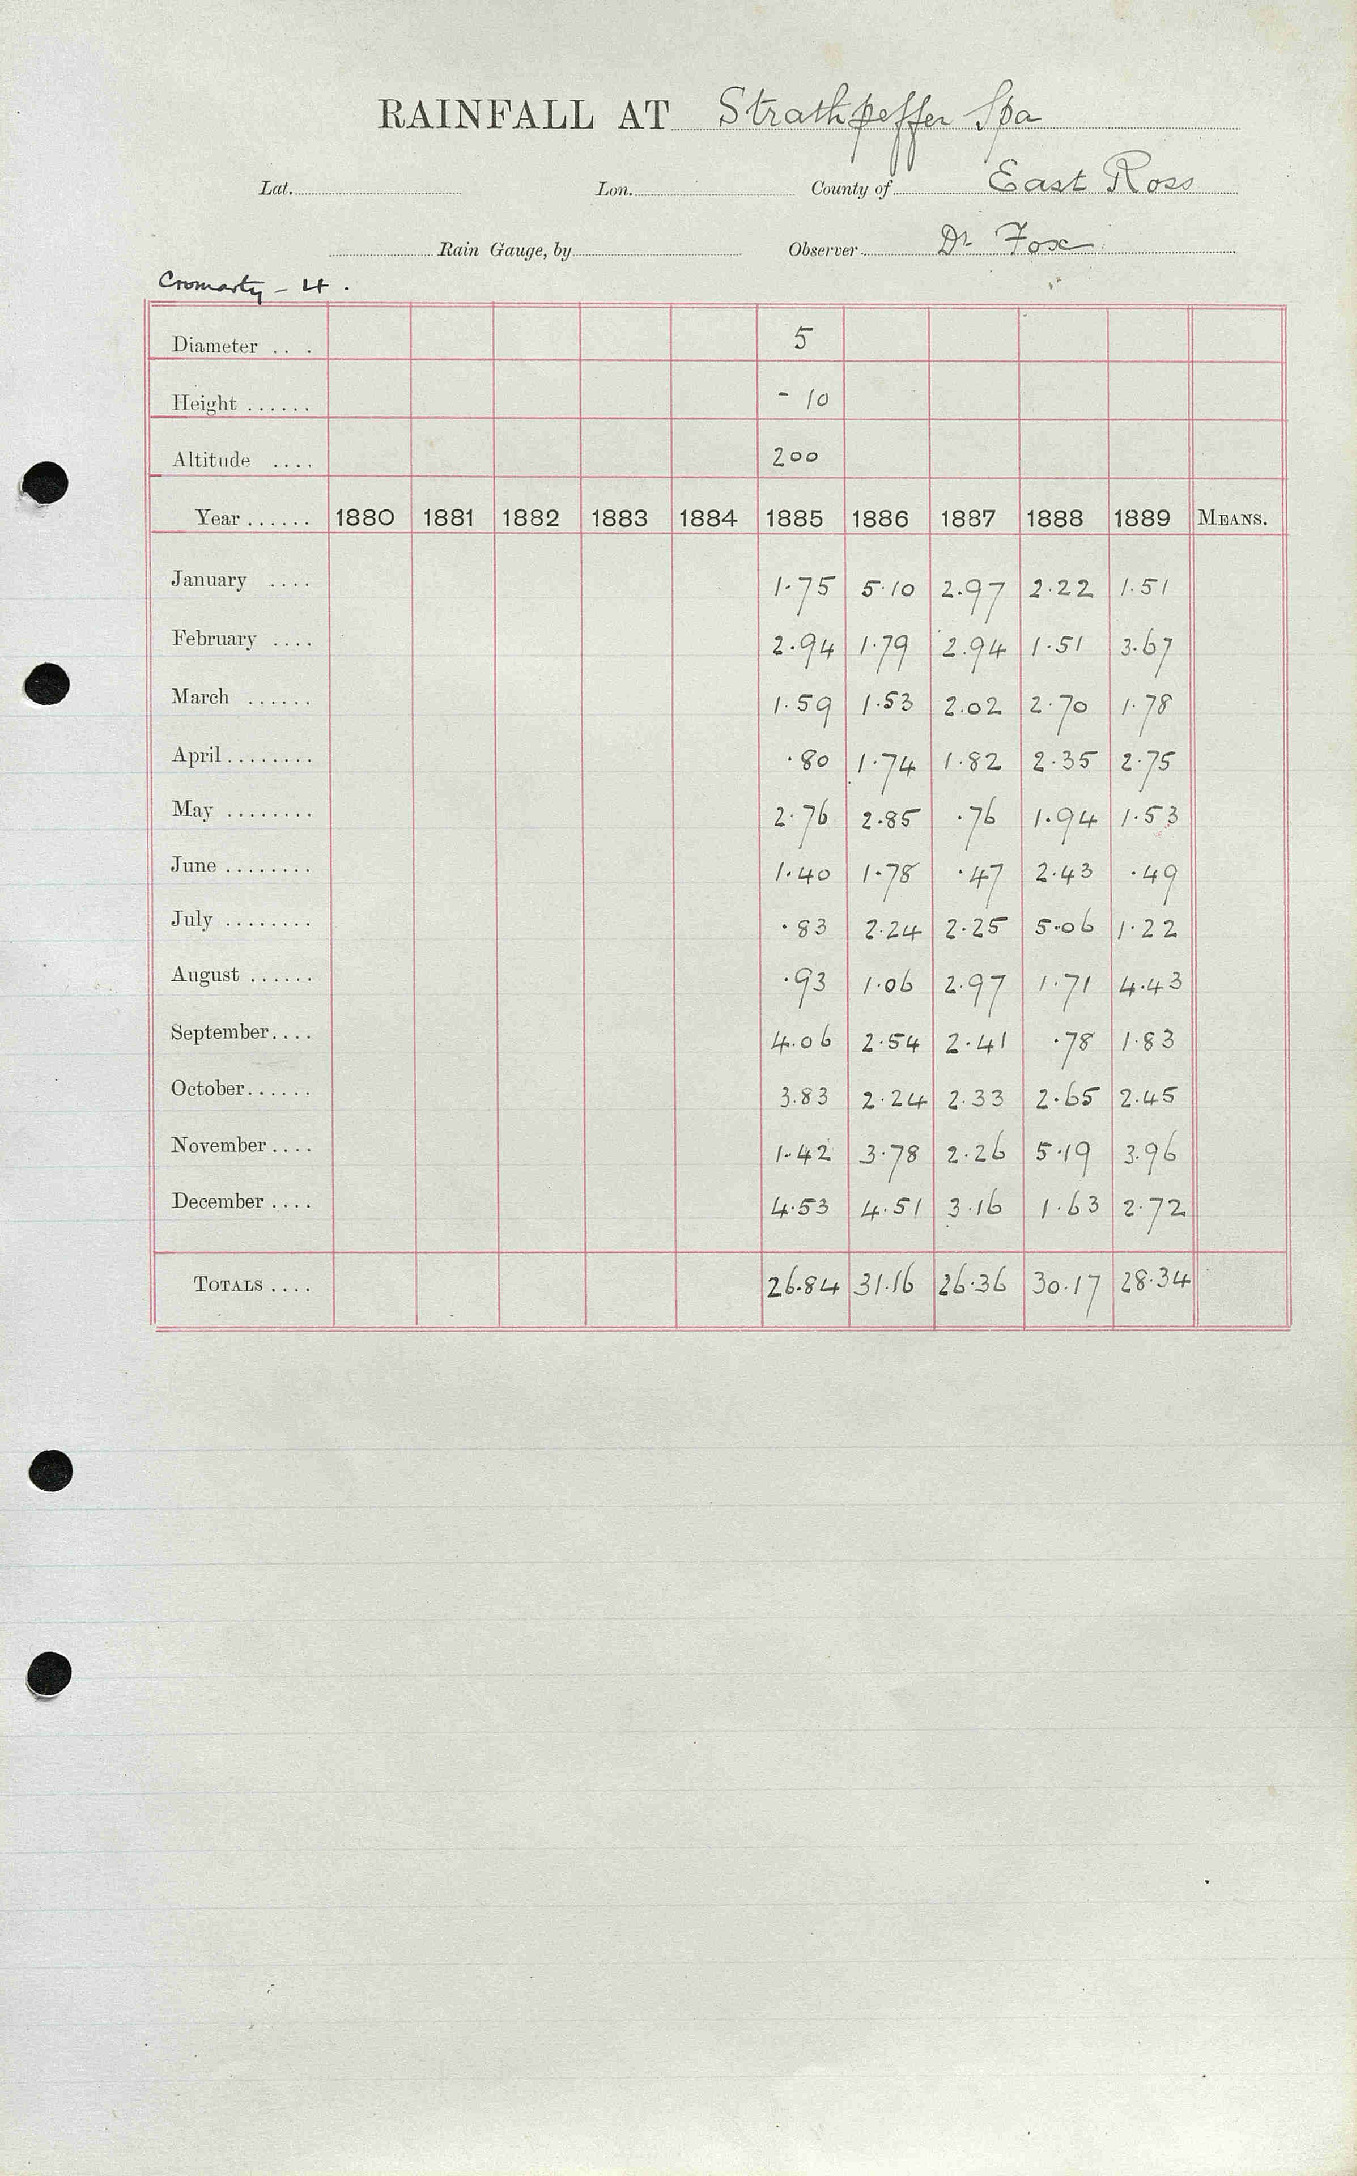 RAINFALL AT Strathpeffer Spa
Lat. Lon. County of East Ross
Rain Gauge, by Observer Dr Fox
Cromarty - 4.
Diameter ... 5
Height ...... - 10
Altitude .... 200
Year ...... 1880 1881 1882 1883 1884 1885 1886 1887 1888 1889 MEANS.
January .... 1.75 5.10 2.97 2.22 1.51
February .... 2.94 1.79 2.94 1.51 3.67
March ...... 1.59 1.53 2.02 2.70 1.78
April........ .80 1.74 1.82 2.35 2.75
May ........ 2.76 2.85 .76 1.94 1.53
June ........ 1.40 1.78 .47 2.43 .49
July ........ .83 2.24 2.25 5.06 1.22
August ...... .93 1.06 2.97 1.71 4.43
September.... 4.06 2.54 2.41 .78 1.83
October...... 3.83 2.24 2.33 2.65 2.45
November.... 1.42 3.78 2.26 5.19 3.96
December .... 4.53 4.51 3.16 1.63 2.72
TOTALS .... 26.84 31.16 26.36 30.17 28.34